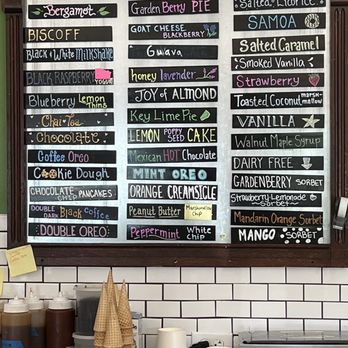 Bergamot
BISCOFF
Black & White Milkshake
BLACK RASPBERRY YOGURT
Blueberry Lemon Thins
Chai Tea
CHOCOLATE
Coffee Oreo
COOKIE DOUGH
CHOCOLATE CHIP PANCAKES
DOUBLE DARK Black Coffee
DOUBLE OREO
Garden Berry PIE
GOAT CHEESE BLACKBERRY
Guava
honey lavender
JOY of ALMOND
Key Lime Pie
LEMON POPPY SEED CAKE
Mexican HOT Chocolate
MINT OREO
ORANGE CREAMSICLE
Peanut Butter Marshmallow CHIP
Peppermint White CHIP
Salted Licorice
SAMOA
Salted Caramel
Smoked Vanilla
Strawberry
Toasted Coconut marsh-mallow
VANILLA
Walnut Maple Syrup
DAIRY FREE
GARDENBERRY SORBET
Strawberry Lemonade Sorbet
Mandarin Orange Sorbet
MANGO SORBET